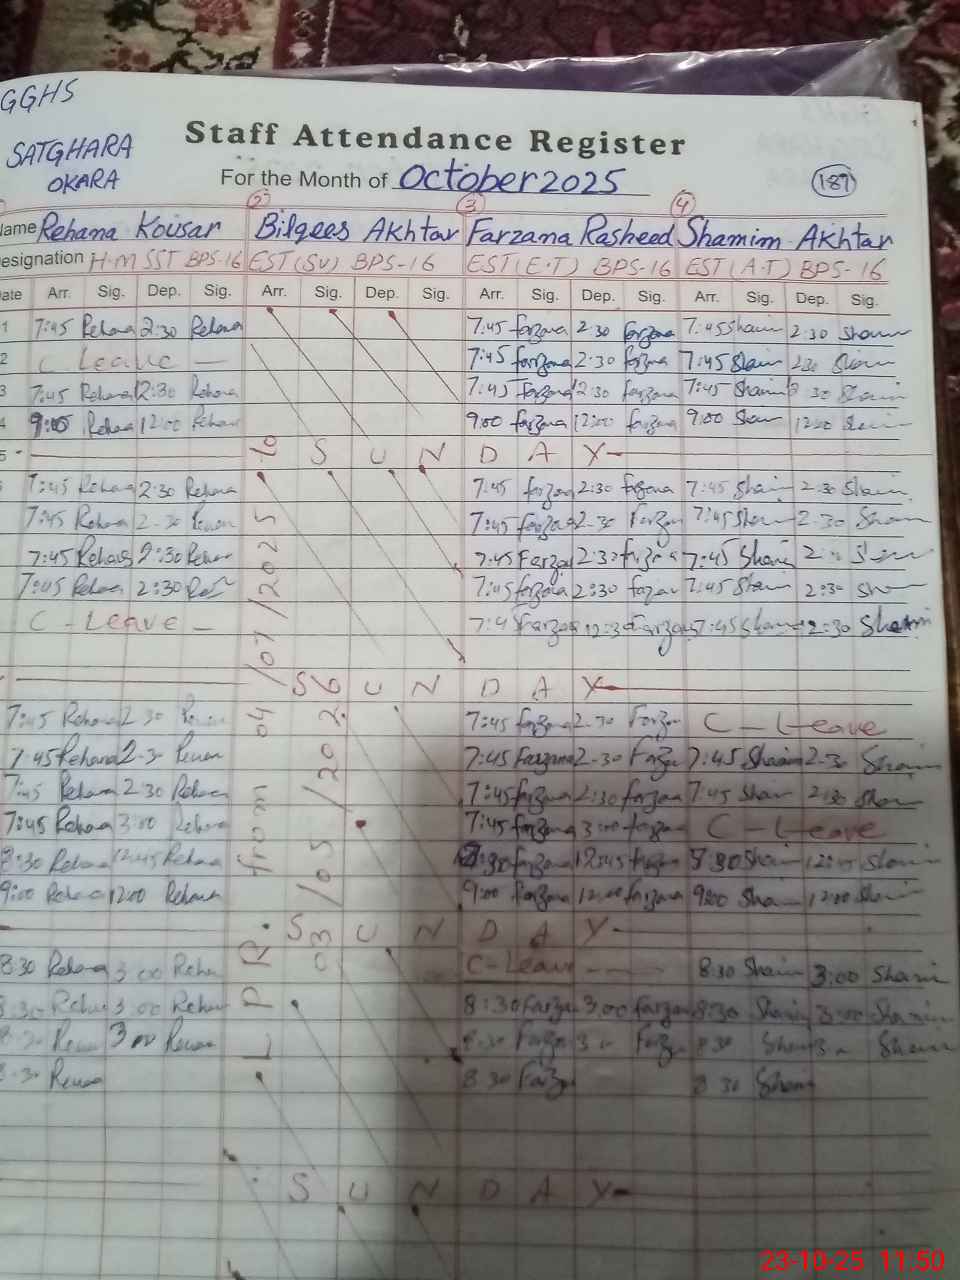 GGHS
SATGHARA
OKARA
Staff Attendance Register
For the Month of October 2025 187
2 3 4
Name Rehana Kousar Bilqees Akhtar Farzana Rasheed Shamim Akhtar
Designation H.M SST BPS-16 EST(SV) BPS-16 EST(E.T) BPS-16 EST(A.T) BPS-16
Date Arr. Sig. Dep. Sig. Arr. Sig. Dep. Sig. Arr. Sig. Dep. Sig. Arr. Sig. Dep. Sig.
1 7:45 Rehana 2:30 Rehana 7:45 farzana 2:30 farzana 7:45 Sham 2:30 Sham
2 C Leave — 7:45 farzana 2:30 farzana 7:45 2:30
3 7:45 Rehana 2:30 Rehana 7:45 Farzana 2:30 farzana 7:45 Sham 2:30
4 9:05 Rehana 12:00 Rehana 9:00 farzana 12:00 farzana 9:00 12:00
5 S U N D A Y
7:45 Rehana 2:30 Rehana 7:45 farzana 2:30 farzana 7:45 Sham 2:30 Sham
7:45 Rehana 2-30 7:45 farzana 2-30 Farzan 7:45 Sham 2:30 Sham
7:45 Rehana 2:30 Rehana 7:45 Farzan 2:30 7:45 Sham
7:45 Rehana 2:30 7:45 farzana 2:30 7:45 Sham 2:30 Sha
C - Leave - 7:45 farzana 2:30 farzana 7:45 Sham 2:30 Sham
S U N D A Y
7:45 Rehana 2 30 7:45 farzana 2-30 Farzan C - Leave
7:45 Rehana 2-30 7:45 Farzana 2-30 Farzan 7:45 Sham 2-30 Sham
7:45 Rehana 2:30 Rehana 7:45 farzana 2:30 farzana 7:45 Sham 2:30 Sham
7:45 Rehana 3:00 Rehana 7:45 farzana 3:00 farzana C - Leave
8:30 Rehana 12:45 Rehana 8:30 farzana 12:45 farzan 8:30 Sham 12:45 Sham
9:00 Rehana 12:00 Rehana 9:00 farzana 12:00 farzana 9:00 Sham 12:00 Sham
S U N D A Y
8:30 Rehana 3:00 Reha C-Leave 8:30 Sham 3:00 Sham
8:30 Rehana 3:00 Rehan 8:30 Farzan 3:00 farzan 8:30 Sham 3:00 Sham
3 00 8:30 Farzan 8 30 Sham Sham
8 30 Farzan 8 30 Sham
S U N D A Y
L P R. from 04/07/2025 to
03/05/2026
23-10-25 11:50